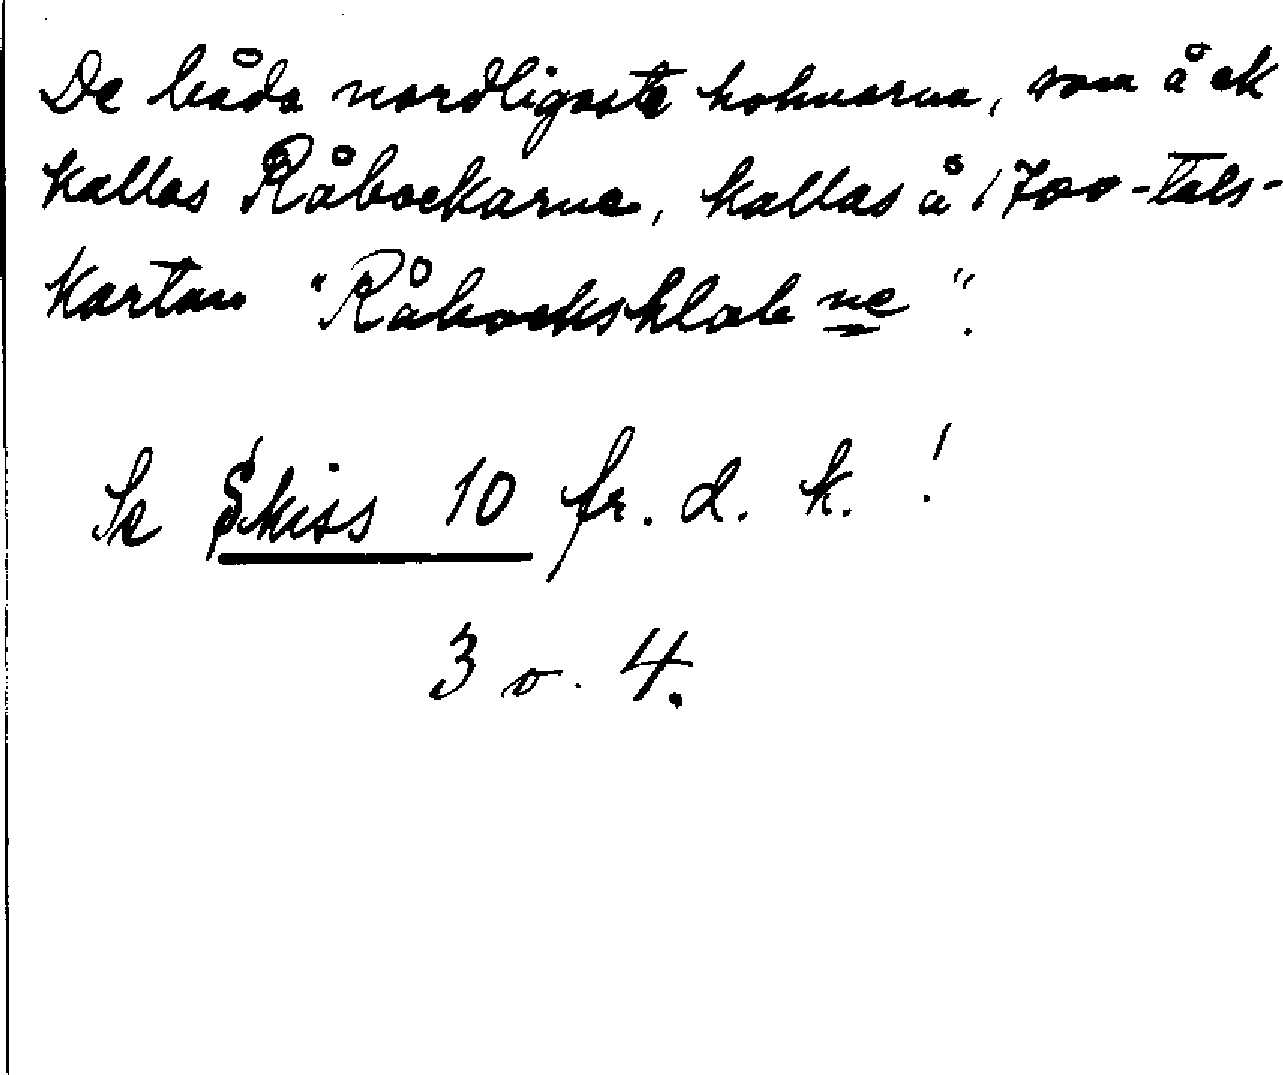 De båda nordligaste holmarna, som å ek
kallas Råbockarna, kallas å 1700-tals-
kartan "Råbocksklabne".
Se Skiss 10 fr. d. k.!
3 o. 4.